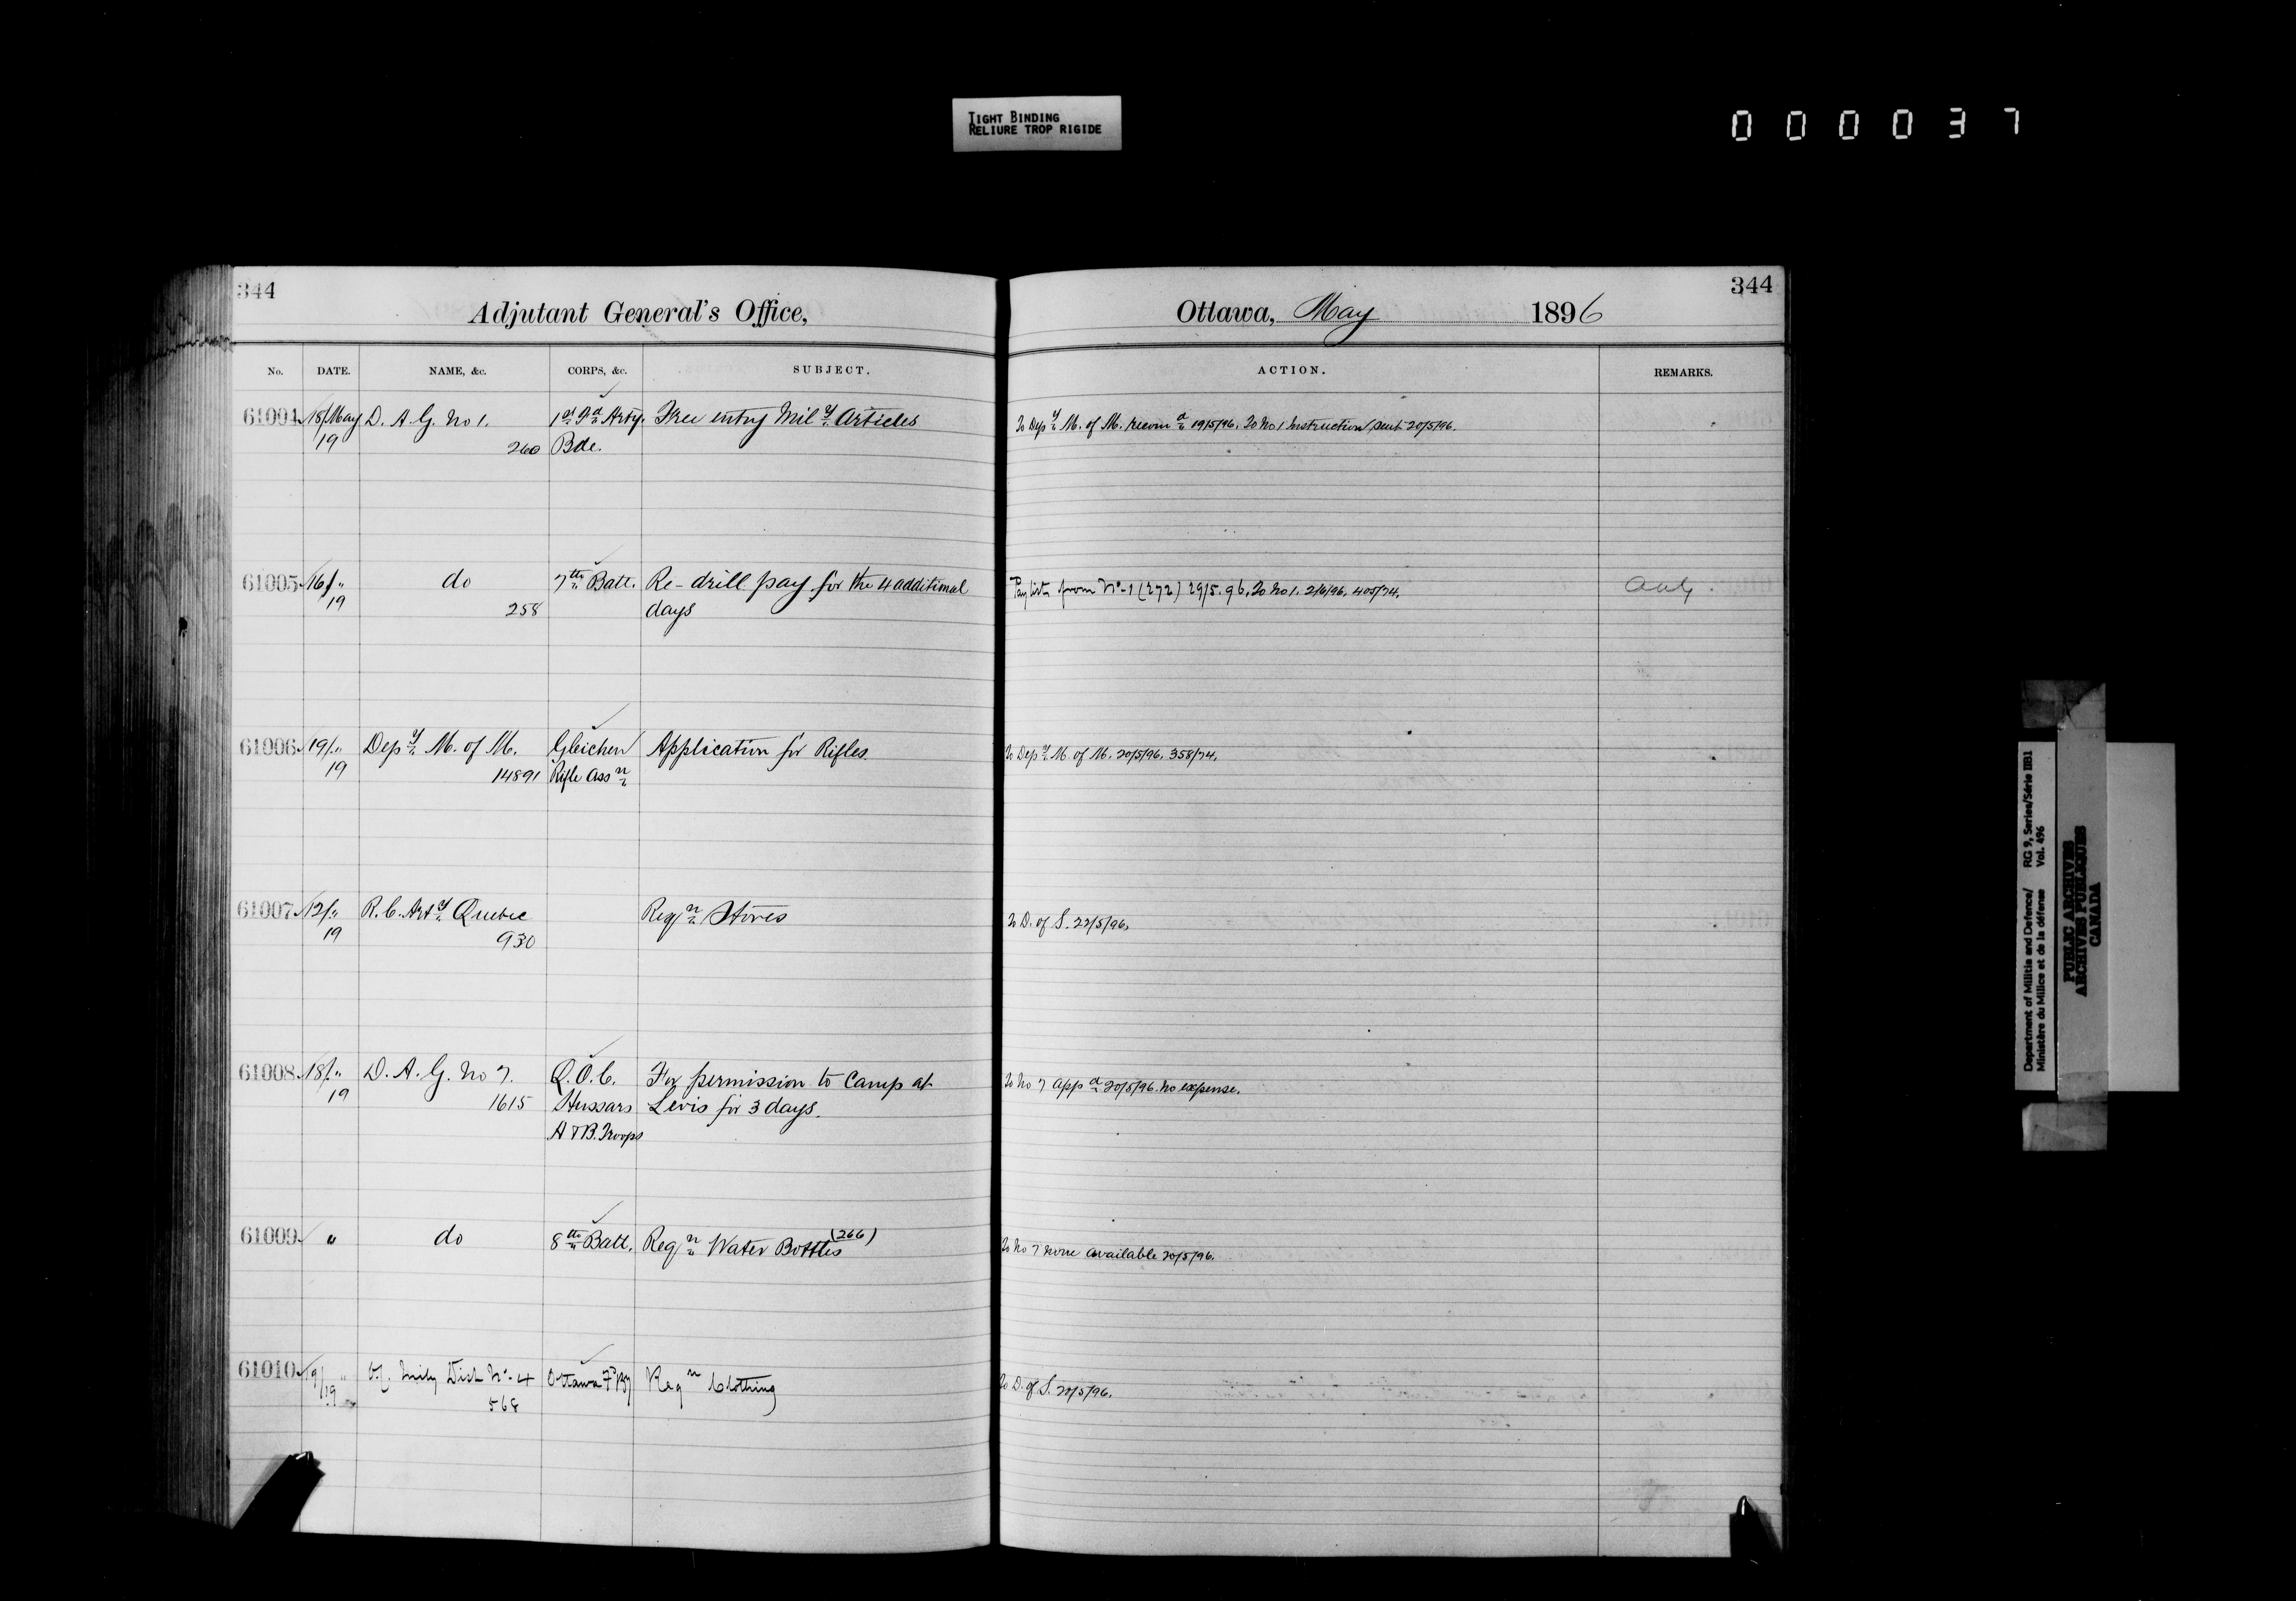 TIGHT BINDING
RELIURE TROP RIGIDE
000037
344
Adjutant General's Office,
Ottawa, May 1896
344
No. DATE. NAME, &c. CORPS, &c. SUBJECT. ACTION. REMARKS.
61004 18/May D. A. G. No 1. 1st Fd Arty. Free entry Mily Articles To Depy M. of M. recomd 19/5/96. To No 1 Instruction sent 20/5/96.
19 260 Bde.
61005 16/" do 7th Batt. Re-drill pay for the 4 additional Pay lists from No-1 (272) 29/5.96. To No 1. 2/6/96. 405/74.
19 258 days
61006 19/" Depy M. of M. Gleichen Application for Rifles. To Depy M. of M. 20/5/96. 358/74.
19 14891 Rifle Assn
61007 12/" R.C. Arty Quebec Reqn Stores To D. of S. 22/5/96.
19 930
61008 18/" D. A. G. No 7. Q.O.C. For permission to Camp at To No 7 Appd 20/5/96. No expense.
19 1615 Hussars Levis for 3 days.
A & B. Troops
61009 " do 8th Batt. Reqn Water Bottles (266) To No 7 none available 20/5/96.
61010 19/" Mily Dist No-4 Ottawa F By Reqn Clothing To D. of S. 20/5/96.
19 568
Department of Militia and Defence/ RG 9, Series/Série IIB1
Ministère du Milice et de la défense Vol. 496
PUBLIC ARCHIVES
ARCHIVES PUBLIQUES
CANADA